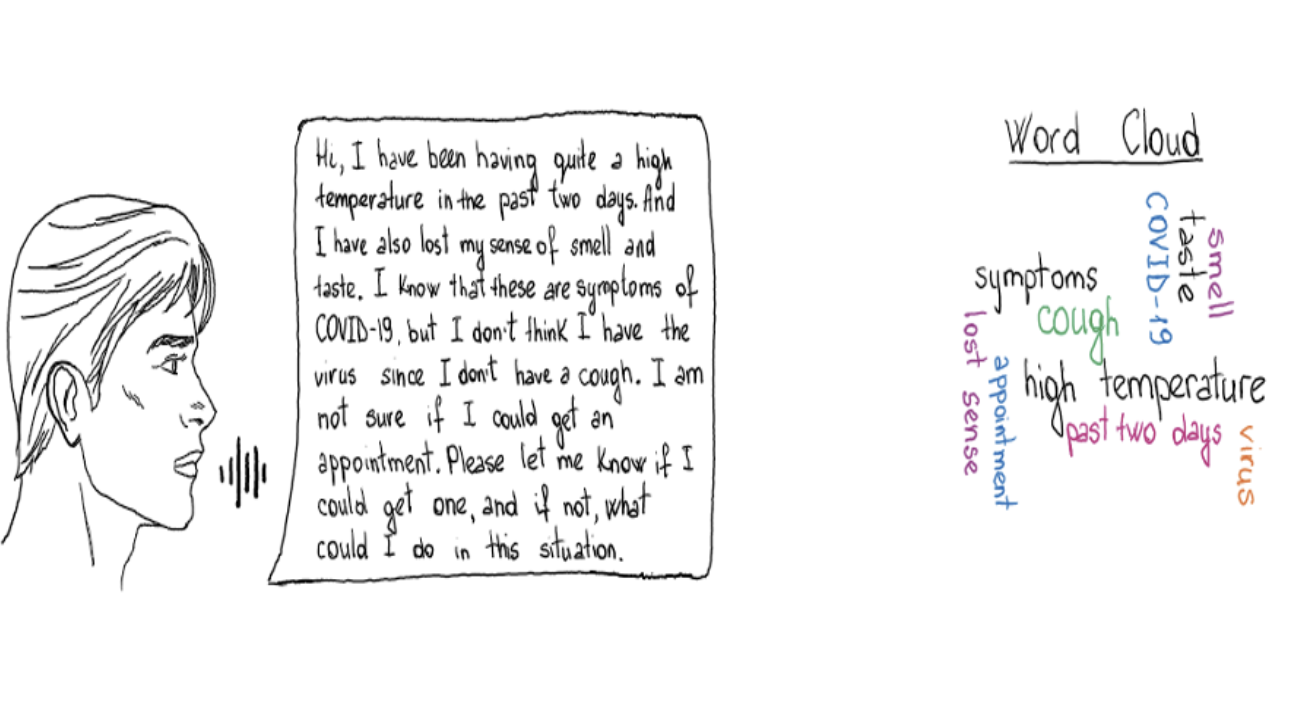 Hi, I have been having quite a high
temperature in the past two days. And
I have also lost my sense of smell and
taste. I know that these are symptoms of
COVID-19, but I don't think I have the
virus since I don't have a cough. I am
not sure if I could get an
appointment. Please let me know if I
could get one, and if not, what
could I do in this situation.
Word Cloud
COVID-19
taste
smell
symptoms
cough
lost sense
appointment
high temperature
past two days
virus